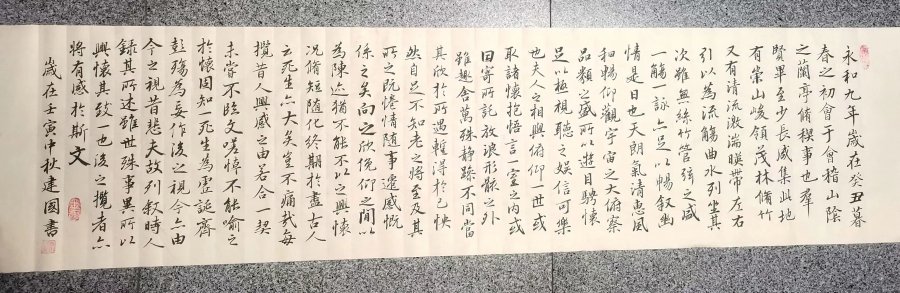 永和九年歲在癸丑暮
春之初會于會稽山陰
之蘭亭脩禊事也羣
賢畢至少長咸集此地
有崇山峻領茂林脩竹
又有清流激湍暎帶左右
引以為流觴曲水列坐其
次雖無絲竹管弦之盛
一觴一詠亦足以暢叙幽
情是日也天朗氣清惠風
和暢仰觀宇宙之大俯察
品類之盛所以遊目騁懷
足以極視聽之娛信可樂
也夫人之相與俯仰一世或
取諸懷抱悟言一室之内或
因寄所託放浪形骸之外
雖趣舍萬殊静躁不同當
其欣於所遇輙得於己怏
然自足不知老之將至及其
所之既惓情隨事遷感慨
係之矣向之欣俛仰之間以
為陳迹猶不能不以之興懷
況脩短隨化終期於盡古人
云死生亦大矣豈不痛哉每
攬昔人興感之由若合一契
未嘗不臨文嗟悼不能喻之
於懷固知一死生為虛誕齊
彭殤為妄作後之視今亦由
今之視昔悲夫故列叙時人
錄其所述雖世殊事異所以
興懷其致一也後之攬者亦
將有感於斯文
歲在壬寅中秋建國書